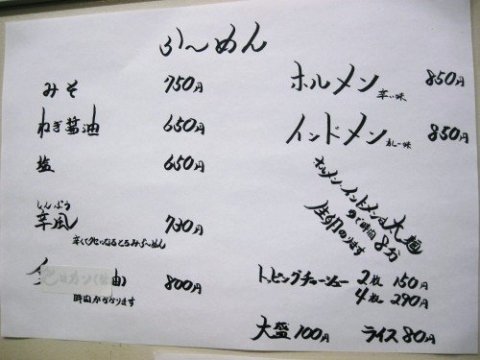 らーめん
みそ 750円
ねぎ醤油 650円
塩 650円
しんぷう
辛風 730円
辛くてクセになるとろみらーめん
油) 800円
時間がかかります
ホルメン 辛い味 850円
インドメン カレー味 850円
ホルメン インドメンは太麺
ゆで時間8分
生卵のります
トッピングチャーシュー 2枚 150円
4枚 290円
大盛100円 ライス80円